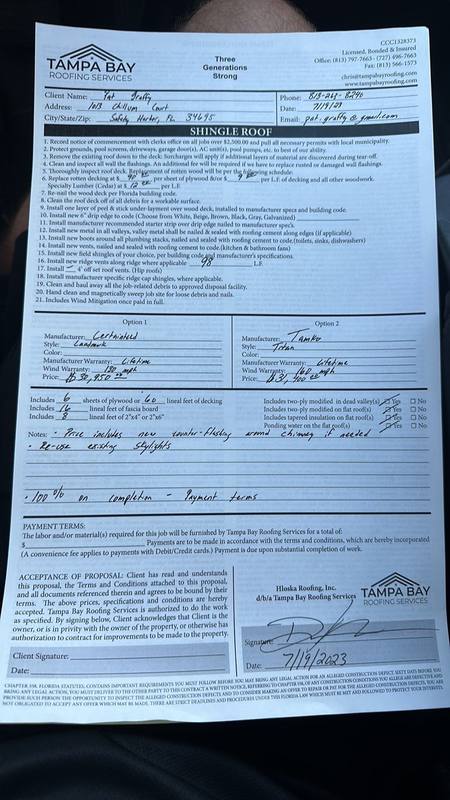 TAMPA BAY
ROOFING SERVICES
Three
Generations
Strong
CCC1328373
Licensed, Bonded & Insured
Office: (813) 797-7663 - (727) 496-7663
Fax: (813) 566-1573
chris@tampabayroofing.com
www.tampabayroofing.com
Client Name: Pat Graffy
Phone: 813-267-8290
Address: Chillum Court
Date: 7/19/23
City/State/Zip: Safety Harbor, FL 34695
Email: pat.graffy@gmail.com
SHINGLE ROOF
1. Record notice of commencement with clerks office on all jobs over $2,500.00 and pull all necessary permits with local municipality.
2. Protect grounds, pool screens, driveways, garage door(s), AC unit(s), pool pumps, etc. to best of our ability.
3. Remove the existing roof to the deck: Surcharges will apply if additional layers of material are discovered during tear-off.
4. Clean and inspect all wall the flashings. An additional fee will be required if we have to replace rusted or damaged wall flashings.
5. Thoroughly inspect roof deck. Replacement of rotten wood will be per the following schedule:
6. Replace rotten decking at $ 90 per sheet of plywood &/or $ per L.F. of decking and all other woodwork.
Specialty Lumber (Cedar) at $ 12 per L.F.
7. Re-nail the wood deck per Florida building code.
8. Clean the roof deck off of all debris for a workable surface.
9. Install one layer of peel & stick underlayment over wood deck, installed to manufacturer specs and building code.
10. Install new 6" drip edge to code (Choose from White, Beige, Brown, Black, Gray, Galvanized)
11. Install manufacturer recommended starter strip over drip edge nailed to manufacturer specs.
12. Install new metal in all valleys, valley metal shall be nailed & sealed with roofing cement along edges (if applicable)
13. Install new boots around all plumbing stacks, nailed and sealed with roofing cement to code.(toilets, sinks, dishwashers)
14. Install new vents, nailed and sealed with roofing cement to code.(kitchen & bathroom fans)
15. Install new field shingles of your choice, per building code and manufacturer's specifications.
16. Install new ridge vents along ridge where applicable 98 L.F.
17. Install 4' off set roof vents. (Hip roofs)
18. Install manufacturer specific ridge cap shingles, where applicable.
19. Clean and haul away all the job-related debris to approved disposal facility.
20. Hand clean and magnetically sweep job site for loose debris and nails.
21. Includes Wind Mitigation once paid in full.
Option 1
Option 2
Manufacturer: Certainteed
Manufacturer: Tamko
Style: Landmark
Style: Titan
Color:
Color:
Manufacturer Warranty: Lifetime
Manufacturer Warranty: Lifetime
Wind Warranty: 130 mph
Wind Warranty: 160 mph
Price: $ 30,950
Price: $ 31,400
Includes 6 sheets of plywood or 60 lineal feet of decking
Includes two-ply modified in dead valley(s) Yes No
Includes 16 lineal feet of fascia board
Includes two-ply modified on flat roof(s) Yes No
Includes 8 lineal feet of 2"x4" or 2"x6"
Includes tapered insulation on flat roof(s) Yes No
Ponding water on the flat roof(s) Yes No
Notes: - Price includes new counter-flashing around chimney if needed
- Re-use existing skylights
- 100% on completion - Payment terms
PAYMENT TERMS:
The labor and/or material(s) required for this job will be furnished by Tampa Bay Roofing Services for a total of:
$ Payments are to be made in accordance with the terms and conditions, which are hereby incorporated
(A convenience fee applies to payments with Debit/Credit cards.) Payment is due upon substantial completion of work.
ACCEPTANCE OF PROPOSAL: Client has read and understands
this proposal, the Terms and Conditions attached to this proposal,
and all documents referenced therein and agrees to be bound by their
terms. The above prices, specifications and conditions are hereby
accepted. Tampa Bay Roofing Services is authorized to do the work
as specified. By signing below, Client Acknowledges that Client is the
owner, or is in privity with the owner of the property, or otherwise has
authorization to contract for improvements to be made to the property.
Hloska Roofing, Inc.
d/b/a Tampa Bay Roofing Services
TAMPA BAY
ROOFING SERVICES
Client Signature:
Signature:
Date:
Date: 7/19/2023
CHAPTER 558, FLORIDA STATUTES, CONTAINS IMPORTANT REQUIREMENTS YOU MUST FOLLOW BEFORE YOU MAY BRING ANY LEGAL ACTION FOR AN ALLEGED CONSTRUCTION DEFECT. SIXTY DAYS BEFORE YOU
BRING ANY LEGAL ACTION, YOU MUST DELIVER TO THE OTHER PARTY TO THIS CONTRACT A WRITTEN NOTICE, REFERRING TO CHAPTER 558, OF ANY CONSTRUCTION CONDITIONS YOU ALLEGE ARE DEFECTIVE AND
PROVIDE SUCH PERSON THE OPPORTUNITY TO INSPECT THE ALLEGED CONSTRUCTION DEFECTS AND TO CONSIDER MAKING AN OFFER TO REPAIR OR PAY FOR THE ALLEGED CONSTRUCTION DEFECTS. YOU ARE
NOT OBLIGATED TO ACCEPT ANY OFFER WHICH MAY BE MADE. THERE ARE STRICT DEADLINES AND PROCEDURES UNDER THIS FLORIDA LAW WHICH MUST BE MET AND FOLLOWED TO PROTECT YOUR INTERESTS.